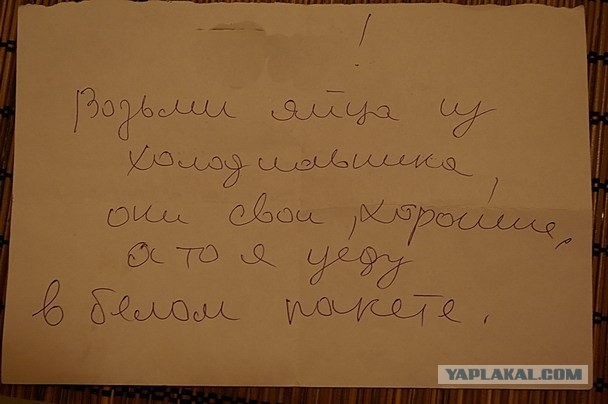 !
Возьми яйца из
холодильника,
они свои, хорошие,
а то я уеду
в белом пакете.
YAPLAKAL.COM